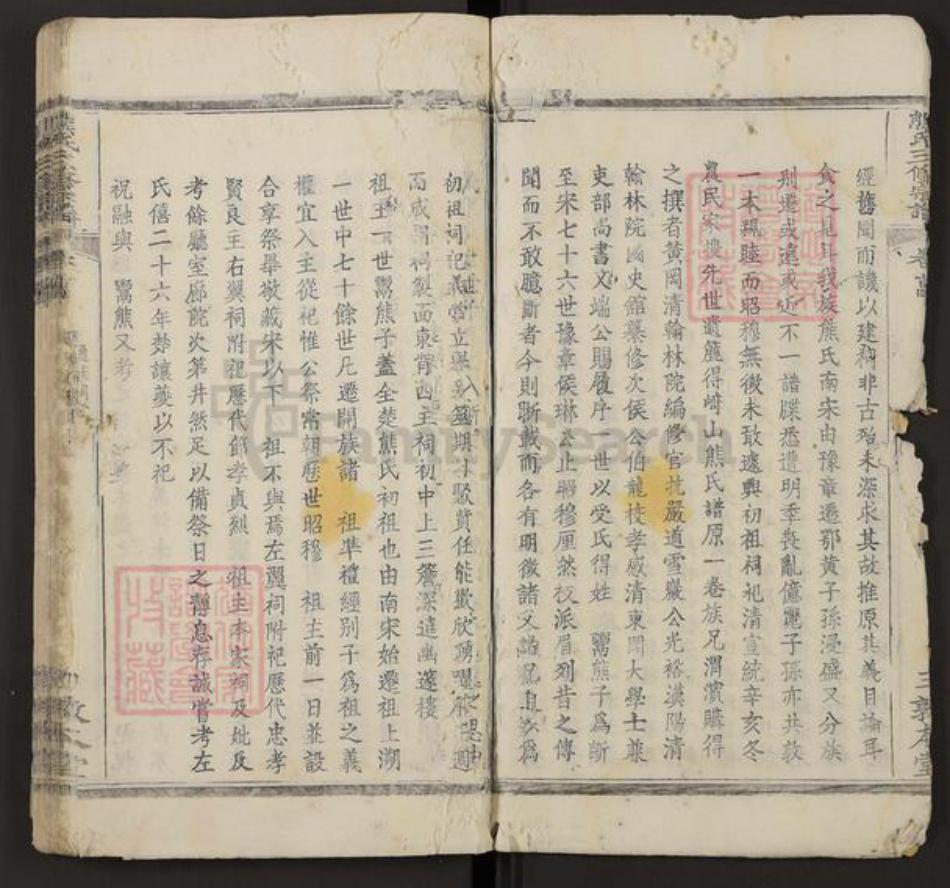 熊氏三修宗譜
三
敦本堂
經舊聞而譏以建 非古 未深求其故推原其義目論耳
食之見耳我族熊氏南宋由豫章遷鄂黃子孫浸盛又分族
别遷或遠或近不一譜牒悉遭明季喪亂億麗子孫亦共敦
一本親睦而昭穆無徵未敢遽興初祖祠祀清宣統辛亥冬
農民家搜先世遺簏得崎山熊氏譜原一卷族兄渭濱購得
之撰者黃岡清翰林院編修官 嚴道雪巖公光裕漢陽清
翰林院國史館纂修次侯 公伯龍校孝感清東閣大學士兼
吏部尚書文端公賜履序 世以受氏得姓 鬻熊子爲斷
至宋七十六世豫章侯琳公止昭穆厘然枝派眉列昔之傳
聞而不敢臆斷者今則斷載而各有明徵諸父 爲
初祖祠 立 期 責任能歡欣踴躍 週
而成 製面東背西主祠初中上三簷深遠幽邃樓
祖主一世鬻熊子蓋全楚熊氏初祖也由南宋始遷祖上溯
一世中七十餘世凡遷開族諸 祖準禮經别子爲祖之義
權宜入主從祀惟公祭常朝歷世昭穆 祖主前一日並設
合享祭畢敬藏宋以下 祖不與焉左翼祠附祀歷代忠孝
賢良主右翼祠附祀歷代節孝貞烈 祖主本家祠及妣及
考餘廳室廊院次第井然足以備祭日之 息存誠嘗考左
氏僖二十六年楚讓夔以不祀
祝融與 鬻熊又考
敦本堂
收藏